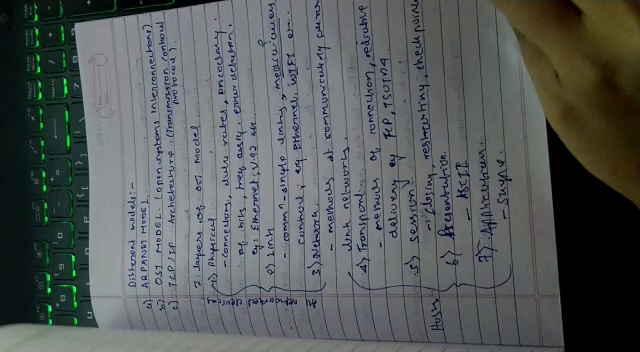 Different models:-
a) ARPANET MODEL.
b) OSI MODEL (open systems Interconnections)
c) TCP/IP Architecture. (Transmission control protocol).
7 layers of OSI model
1) Physical
- connections, data rates, encoding
of bits, freq
eg: Ethernet, V.92
2) Link
- comm - single links,
control, eg Ethernet, WIFI
3) Network
- methods of communicating
link networks.
4) Transport
- methods of connection,
delivery eg TCP,
5) session
- closing restarting, checkpoint
6) Presentation
- ASCII
7) Application
Host